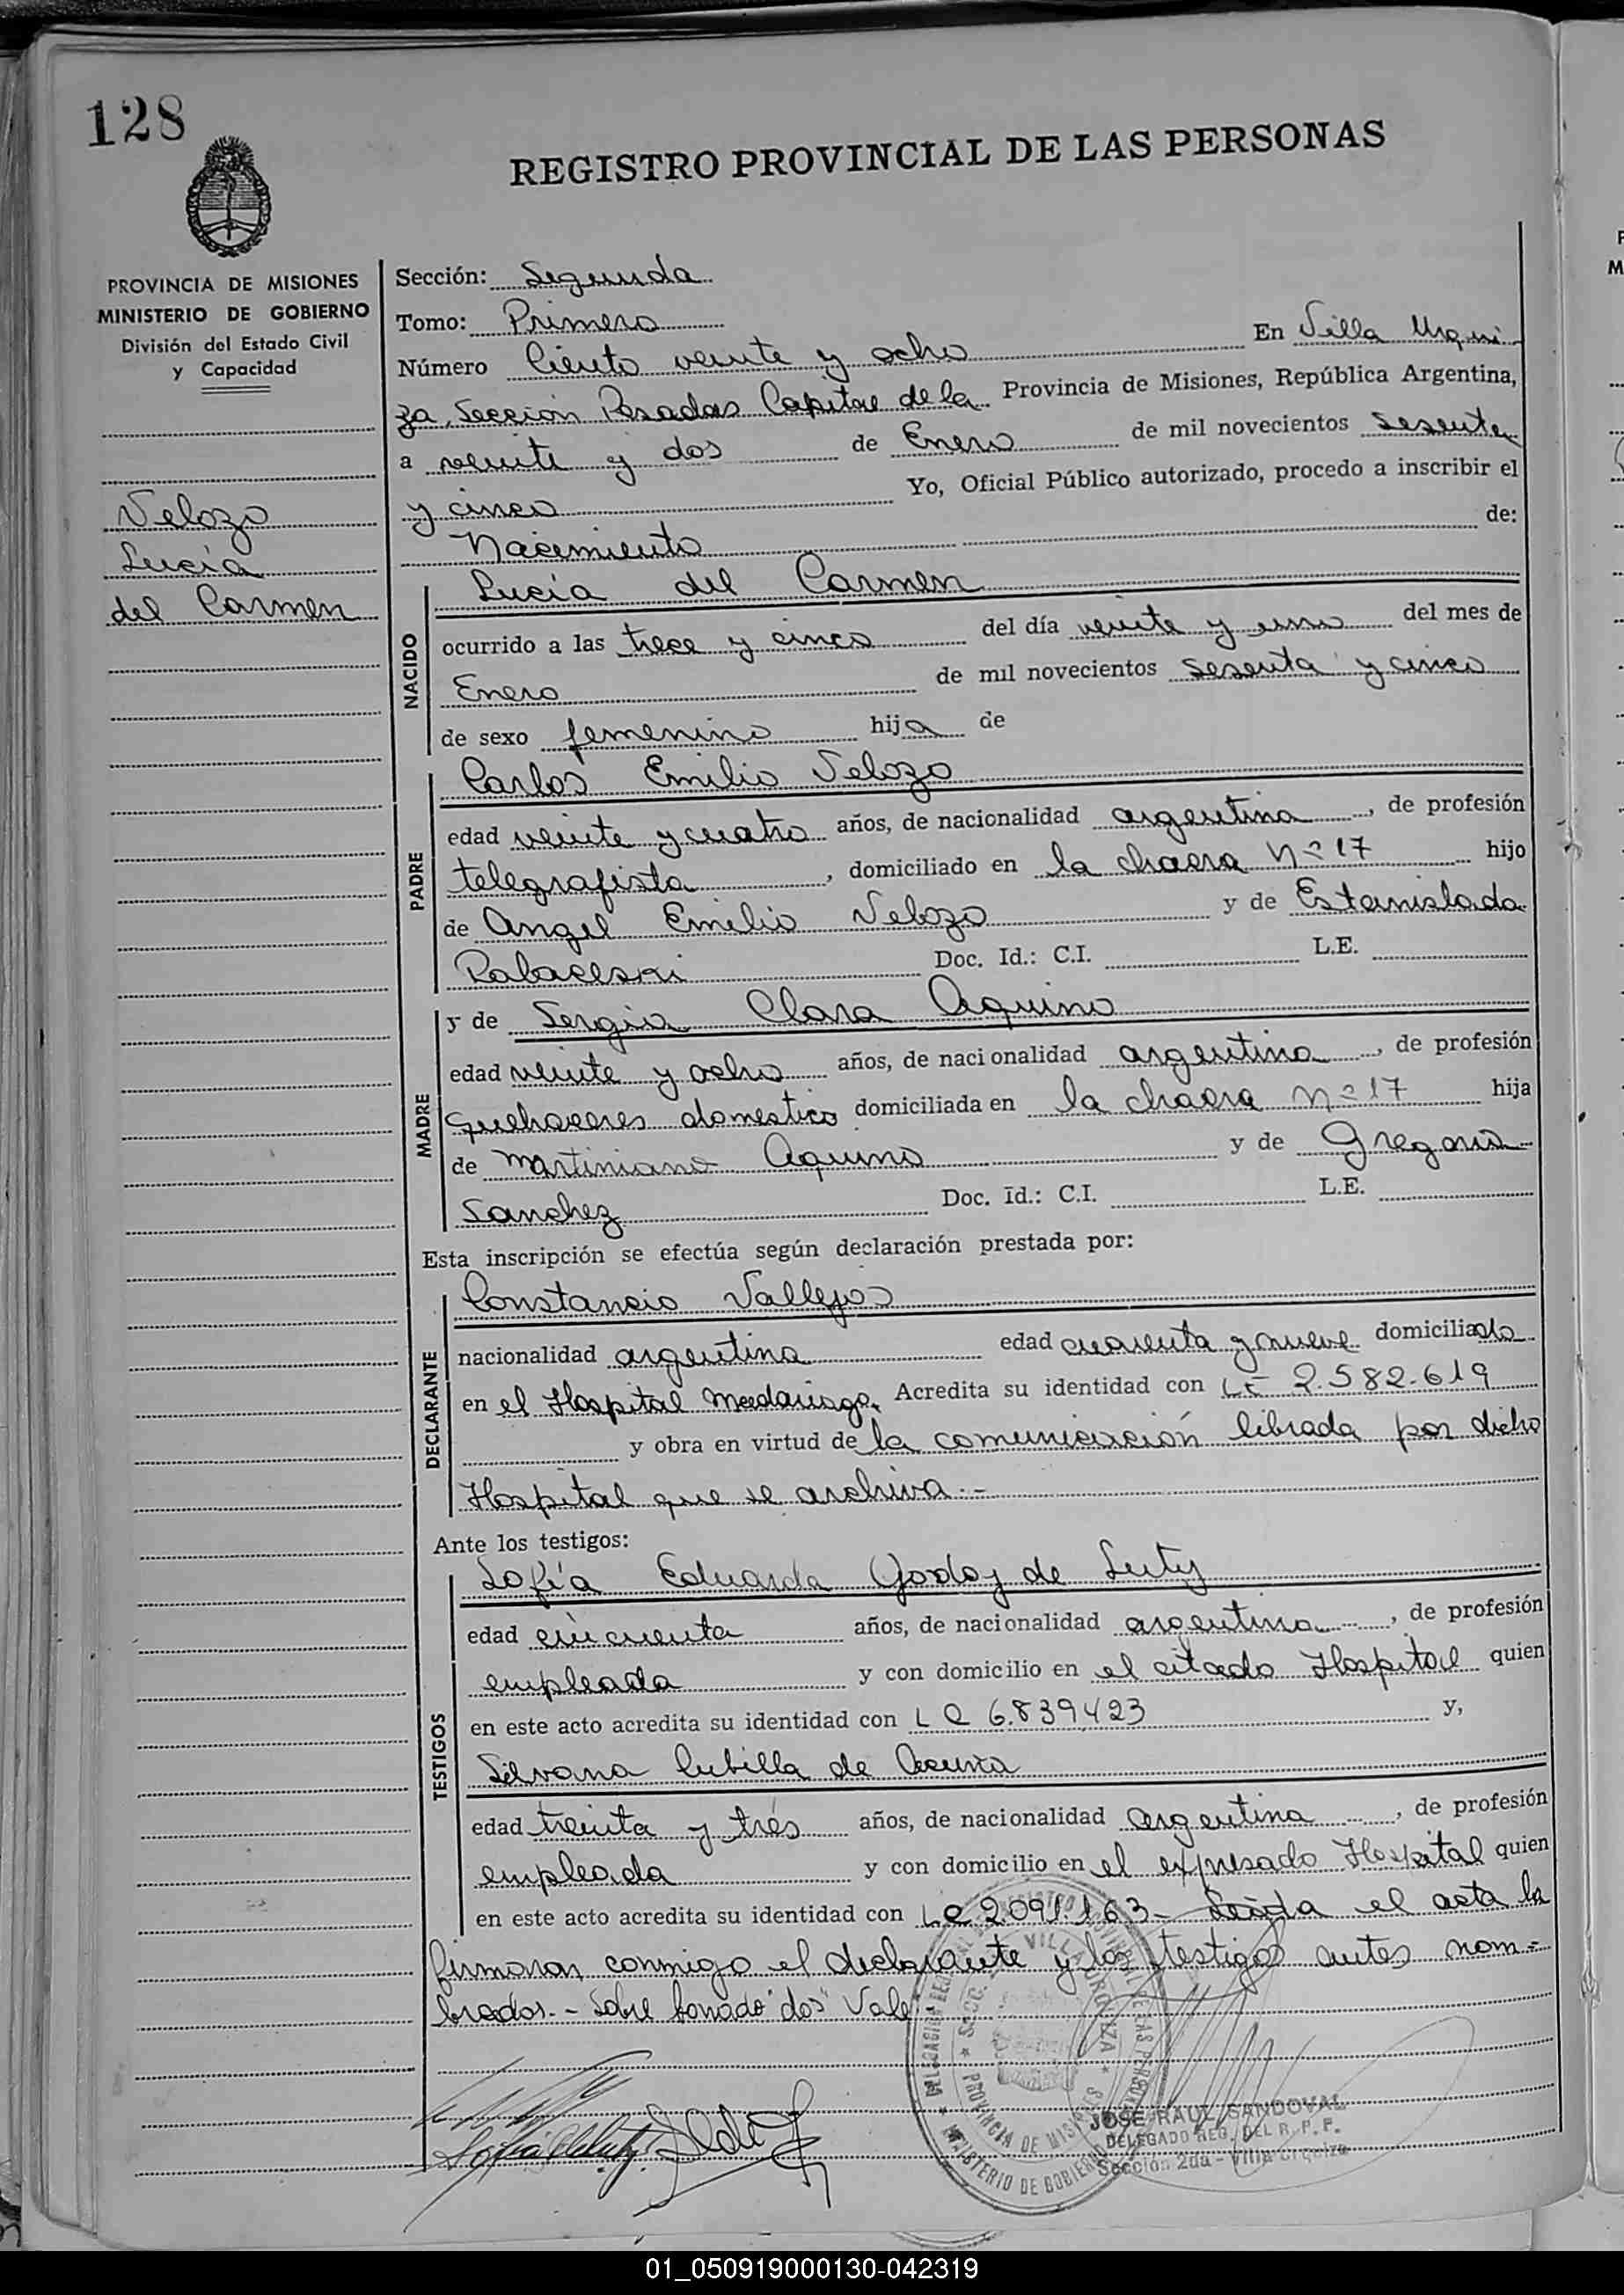 128
REGISTRO PROVINCIAL DE LAS PERSONAS
PROVINCIA DE MISIONES
MINISTERIO DE GOBIERNO
División del Estado Civil
y Capacidad
Velozo
Lucía
del Carmen
Sección: Segunda
Tomo: Primero
Número Ciento veinte y ocho En Villa Urqui
za, Sección Posadas Capital de la Provincia de Misiones, República Argentina,
a veinte y dos de Enero de mil novecientos sesenta
y cinco Yo, Oficial Público autorizado, procedo a inscribir el
Nacimiento de:
NACIDO
Lucía del Carmen
ocurrido a las trece y cinco del día veinte y uno del mes de
Enero de mil novecientos sesenta y cinco
de sexo femenino hija de
PADRE
Carlos Emilio Velozo
edad veinte y cuatro años, de nacionalidad argentina, de profesión
telegrafista, domiciliado en la chacra Nº 17 hijo
de Angel Emilio Velozo y de Estanislada
Doc. Id.: C.I. L.E.
MADRE
y de Sergia Clara Aquino
edad veinte y ocho años, de nacionalidad argentina, de profesión
quehaceres domestico domiciliada en la chacra Nº 17 hija
de Martiniano Aquino y de Gregoria
Sanchez Doc. Id.: C.I. L.E.
Esta inscripción se efectúa según declaración prestada por:
DECLARANTE
Constancio Vallejos
nacionalidad argentina edad cuarenta y nueve domiciliado
en el Hospital Madariaga. Acredita su identidad con LE 2.582.619
y obra en virtud de la comunicación librada por dicho
Hospital que se archiva.-
Ante los testigos:
TESTIGOS
Sofía Eduarda Godoy de
edad cincuenta años, de nacionalidad argentina, de profesión
empleada y con domicilio en el citado Hospital quien
en este acto acredita su identidad con L C 6.839423 y,
Silvana Cubilla de Acuña
edad treinta y tres años, de nacionalidad argentina, de profesión
empleada y con domicilio en el expresado Hospital quien
en este acto acredita su identidad con LC 2.091.163- Leida el acta la
firmaran conmigo el declarante y los testigos antes nom=
brados.- Sobre borrado "dos" Vale
VILLA URQUIZA
PROVINCIA DE MISIONES
MINISTERIO DE GOBIERNO
JOSE RAUL SANDOVAL
DELEGADO REG. DEL R. P. P.
Sección 2da - Villa Urquiza
01_050919000130-042319